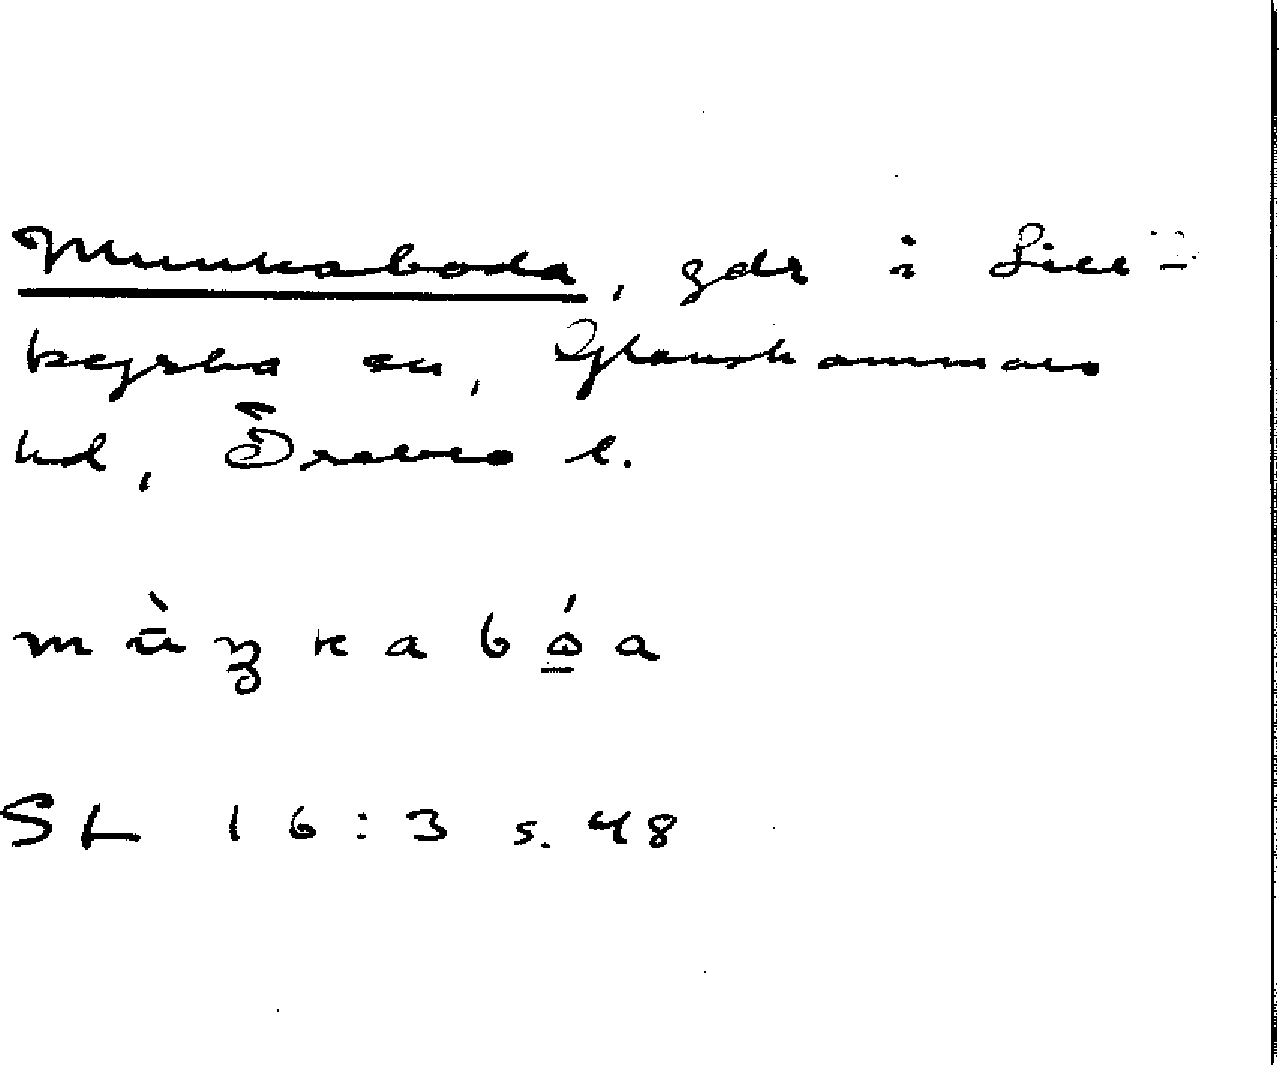 Munkaboda, gdr i Lill-
kyrka sn, Glanshammars
hd, Örebro l.
mùŋkabóa
SL 16:3 s. 48